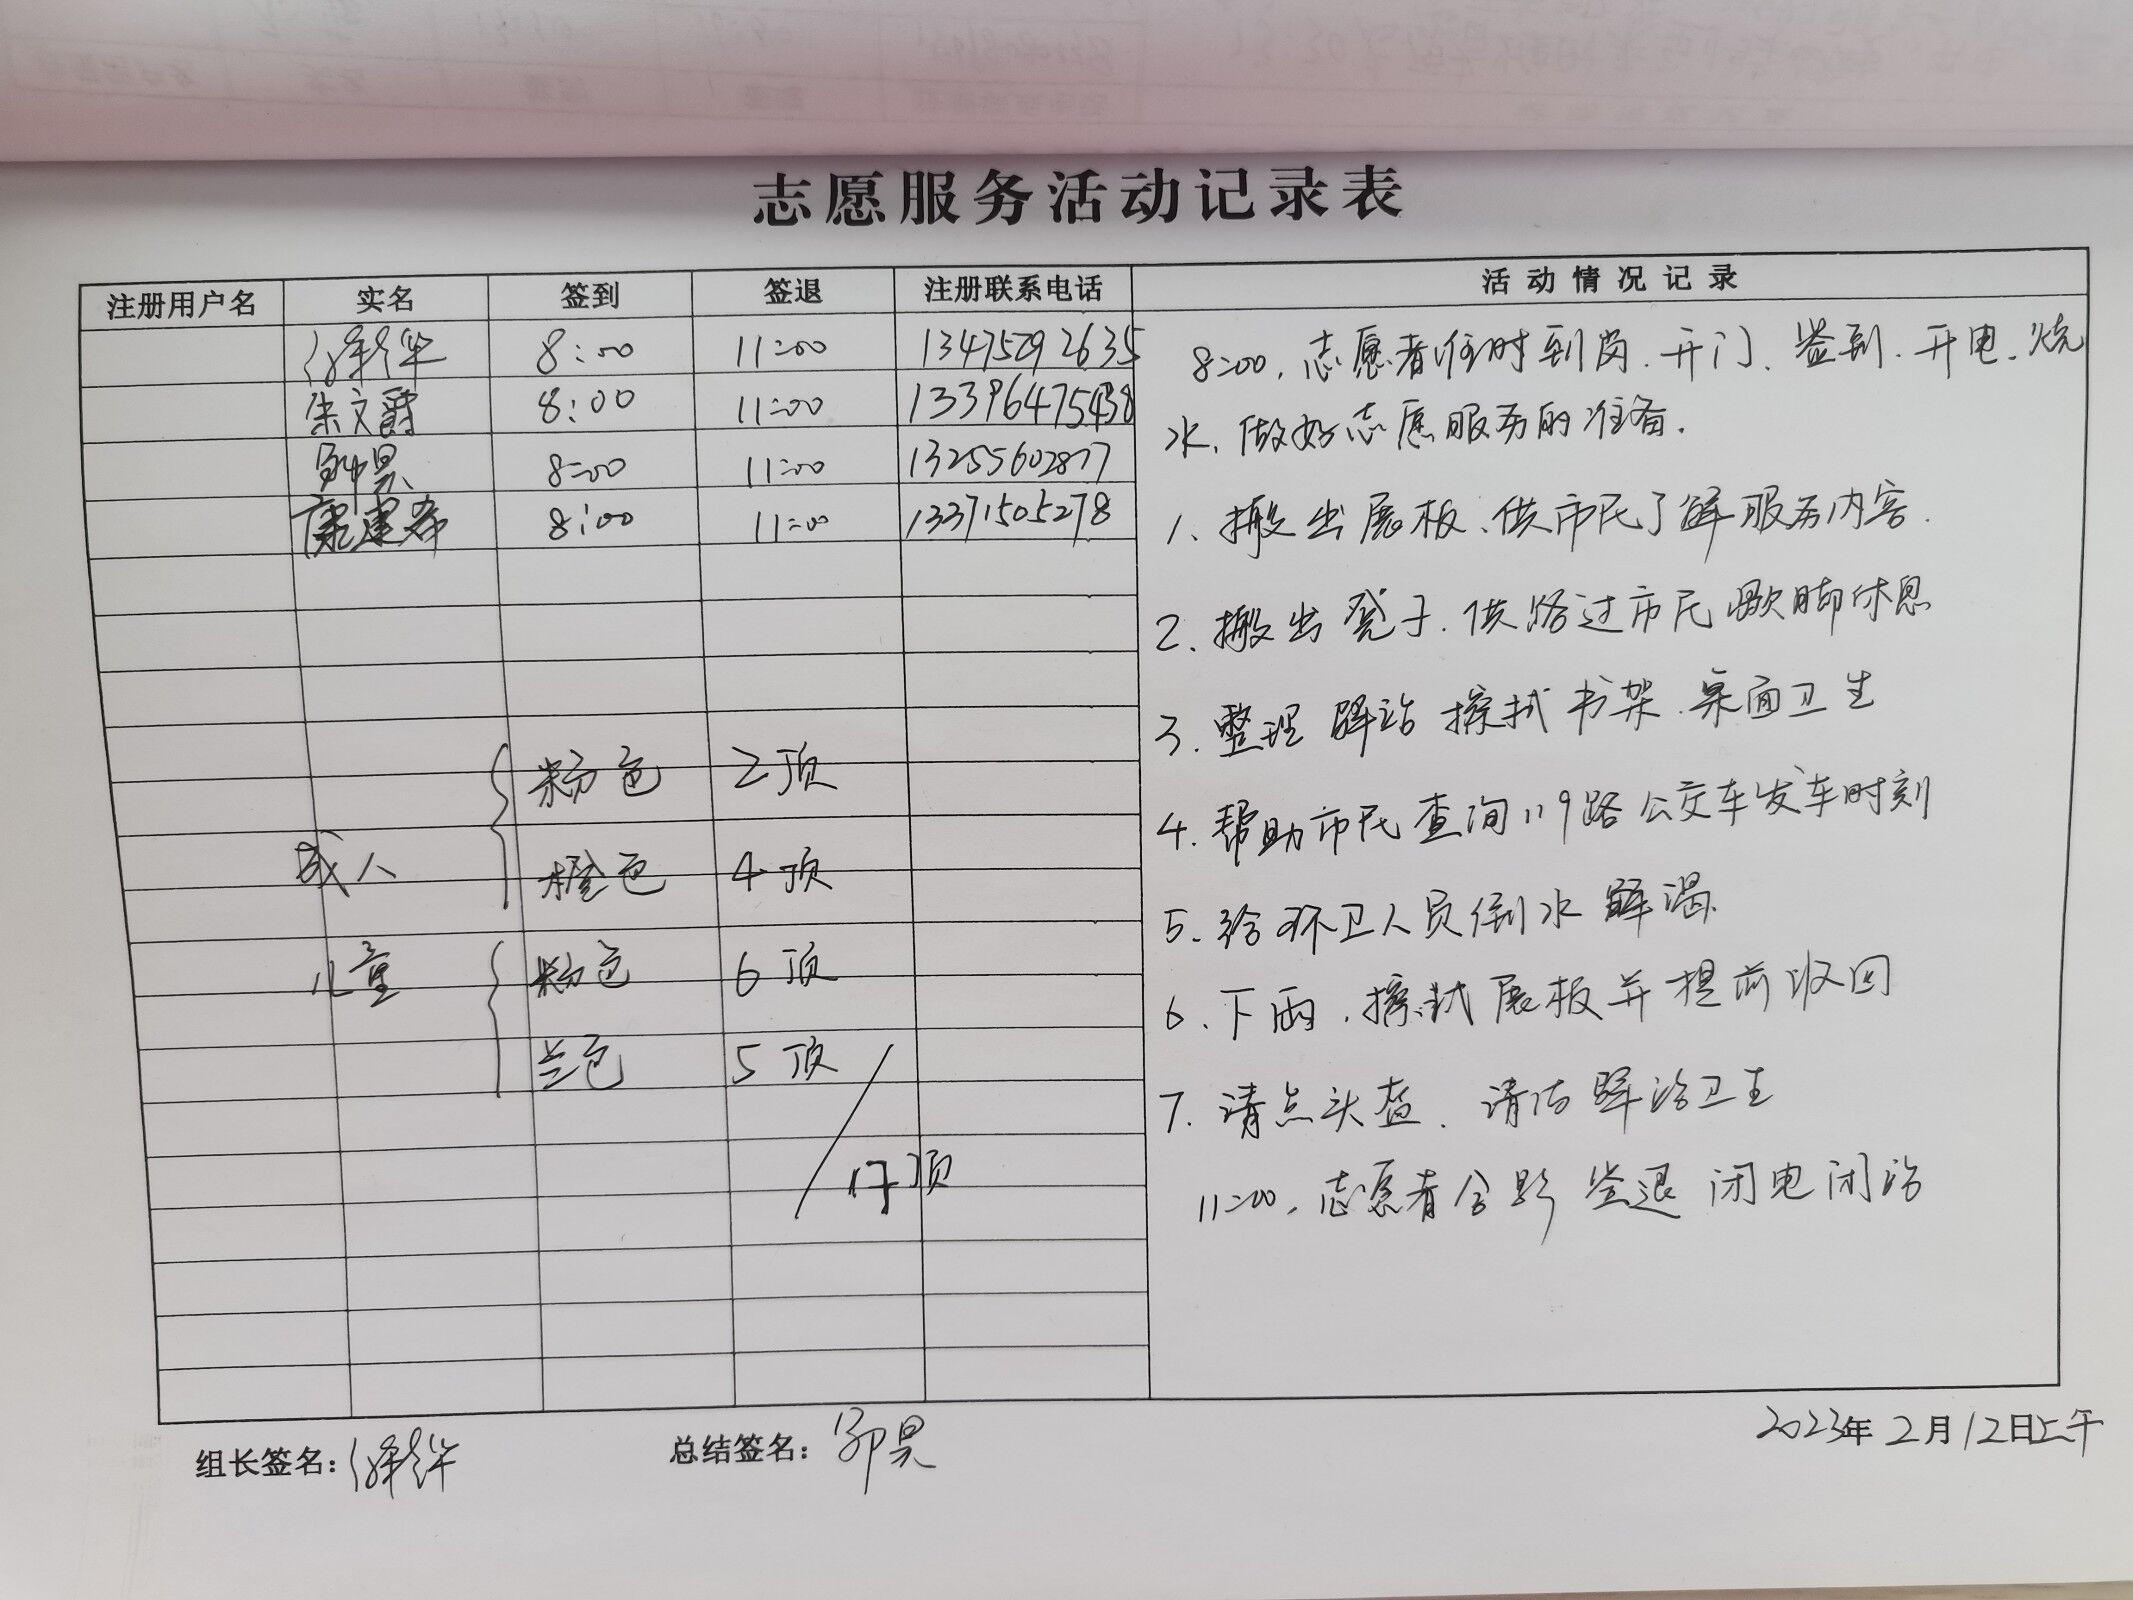 志愿服务活动记录表
注册用户名 实名 签到 签退 注册联系电话 活动情况记录
8:00 11:00 13475292635
朱文爵 8:00 11:00 13396475438
昊 8:00 11:00 13255602877
康建 8:00 11:00 13371505278
8:00,志愿者准时到岗.开门、签到.开电.烧
水,做好志愿服务的准备.
1、搬出展板、供市民了解服务内容.
2、搬出凳子.供路过市民歇脚休息
3.整理驿站 擦拭书架.桌面卫生
4.帮助市民查询119路公交车发车时刻
5.给环卫人员倒水解渴.
6.下雨.擦拭展板并提前收回
7.请点头盔.请洁驿站卫生
11:00,志愿者合影 签退 闭电闭站
成人 粉色 2顶
橙色 4顶
儿童 粉色 6顶
兰色 5顶
17顶
组长签名: 总结签名: 昊 2023年2月12日上午